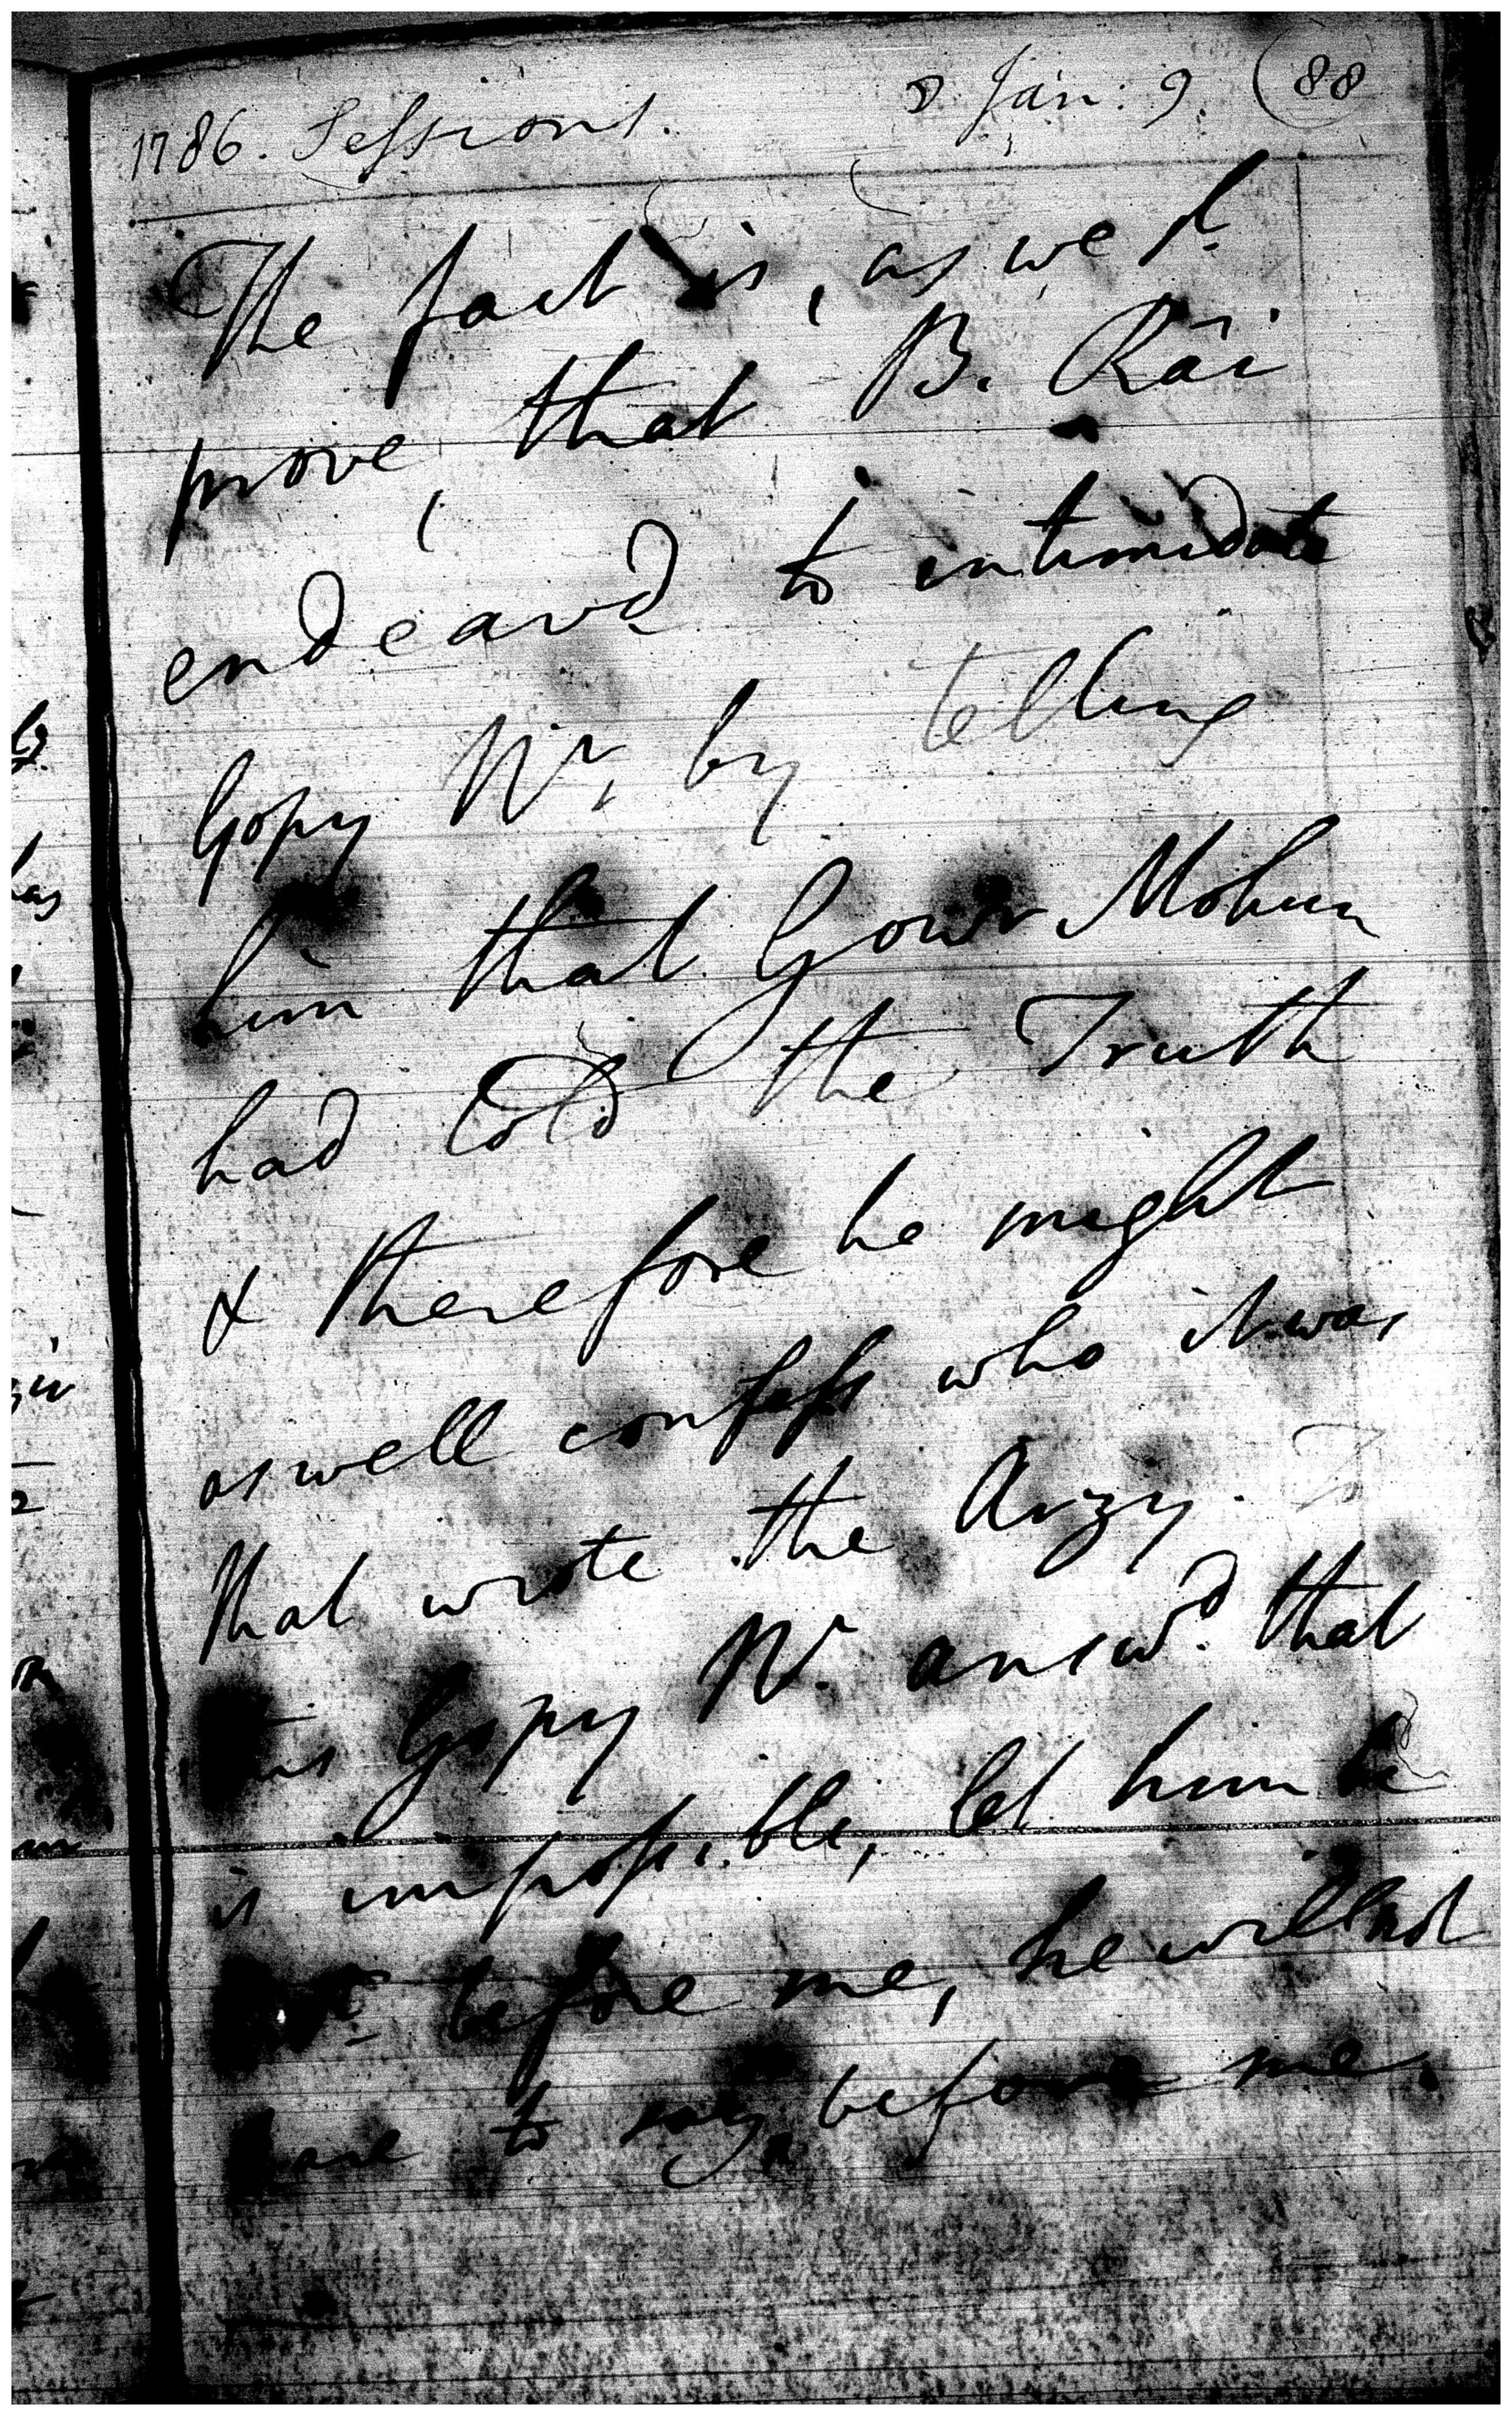 1786. Sessions. Jan: 9. (88
The fact is, as we sh.
prove, that B. Rāi
endeavd. to intimidate
Gopy N., by telling
him that Gowr Mohun
had told the Truth
& therefore he might
as well confess who it was
that wrote the Arzy. To
this Gopy N. answd. that
is impossible, let him be
before me, he will not
dare to say before me.